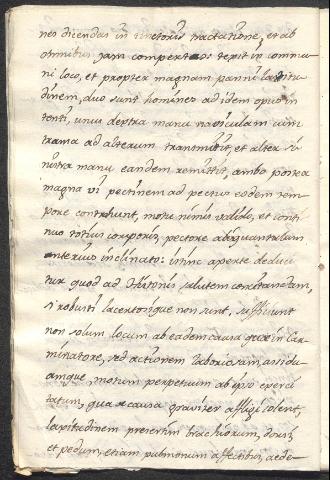 nes dicendas in textoris tractatione, et ab
omnibus jam compertas: texit in commu
ni loco, et propter magnam panni latitu
dinem, duo sunt homines ad idem opus in
tenti, unus dextra manu naviculam cum
trama ad alterum transmittit, et alter si
nistra manu eandem remittit, ambo postea
magna vi pectinem ad pectus eodem tem
pore contrahunt, motu nimis valido, et conti
nuo totius corporis, pectore aliquantulum
anterius inclinato: hinc aperte deduci
tur quod ad Artonis salutem
si robusti lacertosique non sunt, sufficiunt
non solum locum ab eadem causa quae in Car
minatore, sed actionem laboriosam, assidu
amque motum perpetuum ab ipso exerci
tatum, qua de causa graviter affligi solent,
lassitudinem presertim brachiorum, dorsi,
et pedum, etiam pulmonum affectibus, aede-